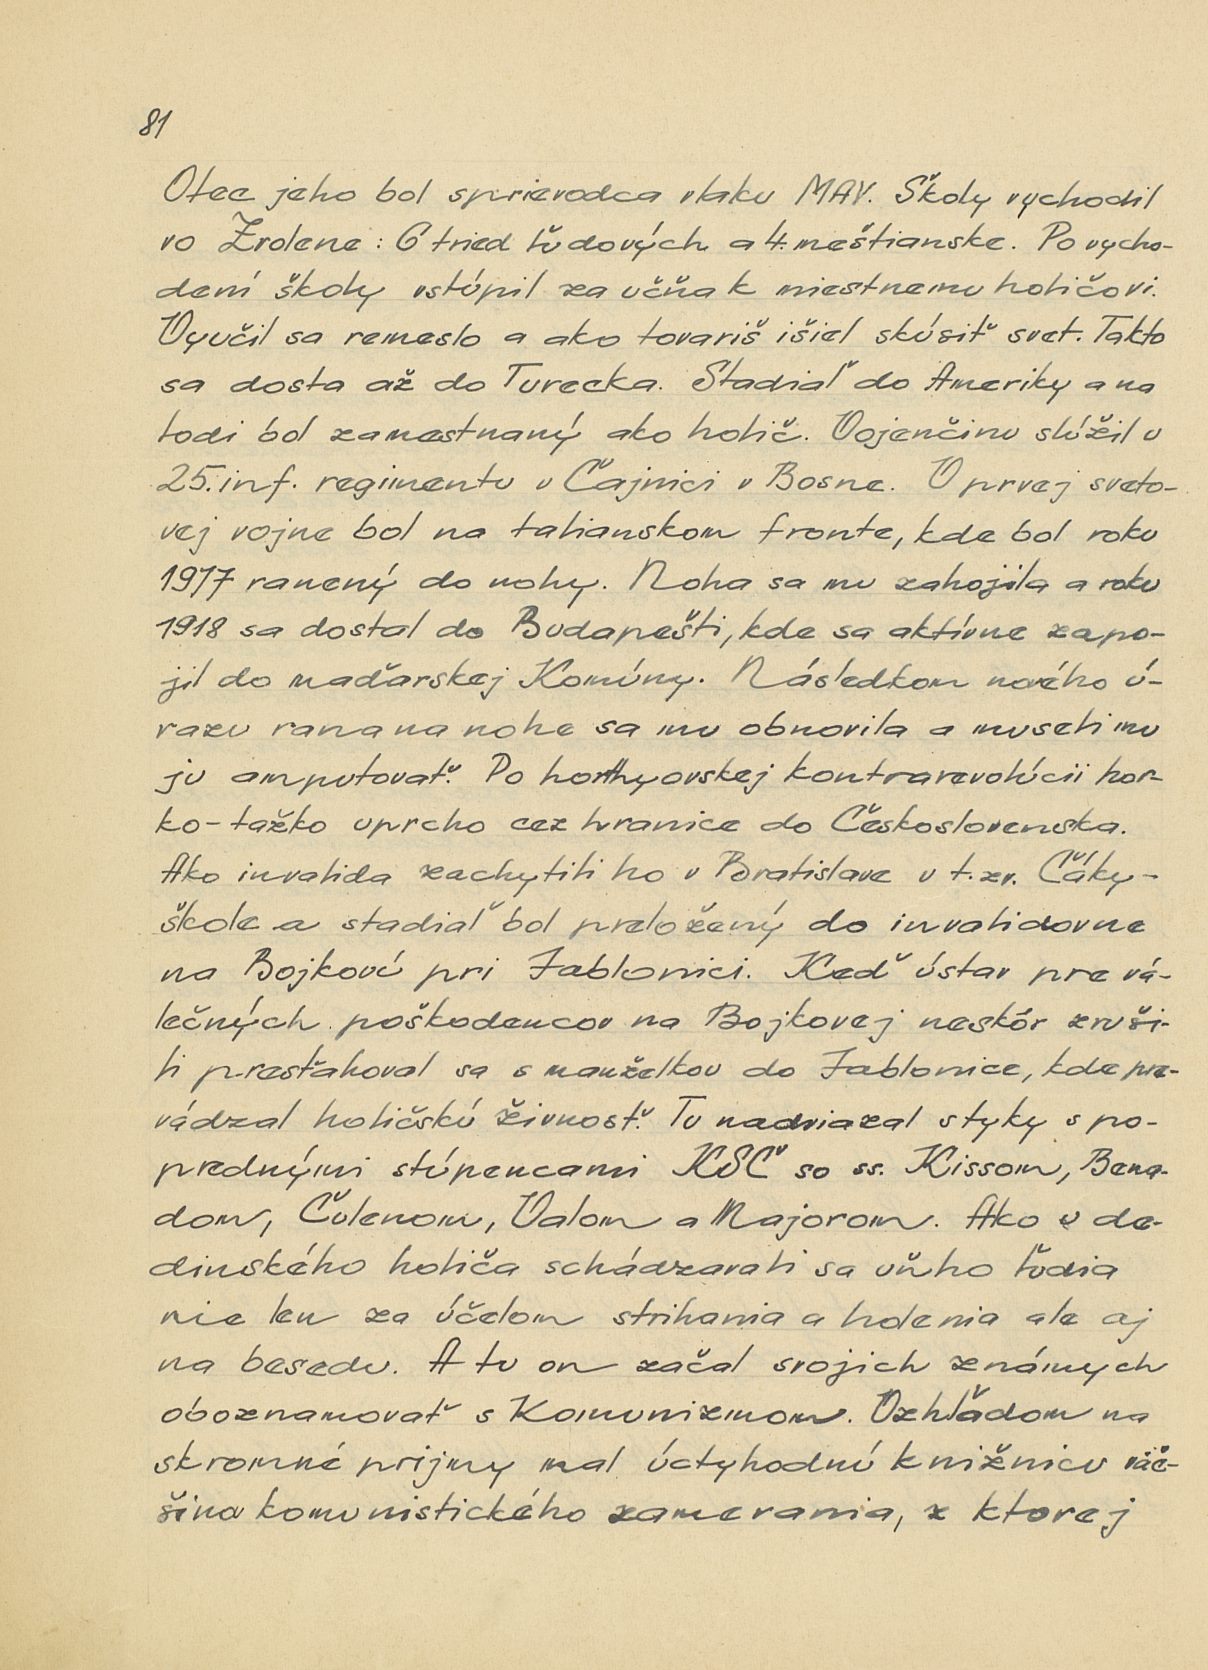 81
Otec jeho bol sprievodca vlaku MAV. Školy vychodil
vo Zvolene: 6 tried ľudových a 4. meštianske. Po vycho-
dení školy vstúpil za učňa k miestnemu holičovi.
Vyučil sa remeslo a ako tovariš išiel skúsiť svet. Takto
sa dosta až do Turecka. Stadiaľ do Ameriky a na
lodi bol zamestnaný ako holič. Vojenčinu slúžil u
25. inf. regimentu v Čajnici v Bosne. V prvej sveto-
vej vojne bol na talianskom fronte, kde bol roku
1917 ranený do nohy. Noha sa mu zahojila a roku
1918 sa dostal do Budapešti, kde sa aktívne zapo-
jil do maďarskej Komúny. Následkom nového ú-
razu rana na nohe sa mu obnovila a museli mu
ju amputovať. Po horthyovskej kontrarevolúcii hor-
ko-ťažko uprcho cez hranice do Československa.
Ako invalida zachytili ho v Bratislave v t.zv. Čáky-
škole a stadiaľ bol preložený do invalidovne
na Bojkovú pri Jablonici. Keď ústav pre vá-
lečných poškodencov na Bojkovej neskór zruši-
li presťahoval sa s manželkou do Jablonice, kde pre-
vádzal holičskú živnosť. Tu nadviazal styky s po-
prednými stúpencami KSČ so ss. Kissom, Bena-
dom, Čulenom, Valom a Majorom. Ako u de-
dinského holiča schádzavali sa uňho ľudia
nie len za účelom strihania a holenia ale aj
na besedu. A tu on začal svojich známych
oboznamovať s Komunizmom. Vzhľadom na
skromné prijmy mal úctyhodnú knižnicu väč-
šina komunistického zamerania, z ktorej